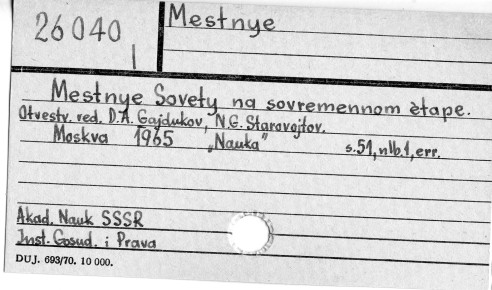 26040
I
Mestnye
Mestnye Sovety na sovremennom ètape.
Otvestv. red. D.A. Gajdukov, N.G. Starovojtov.
Moskva 1965 „Nauka" s.51, nlb.1, err.
Akad. Nauk SSSR
Inst. Gosud. i Prava
DUJ. 693/70. 10 000.